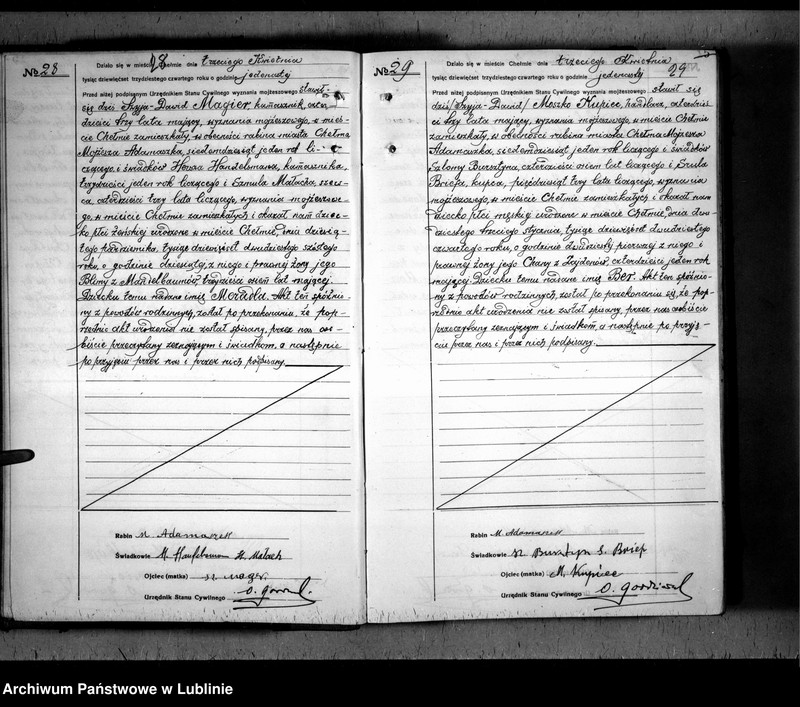 No 28
28
Działo się w mieście Chełmie dnia trzeciego Kwietnia
tysiąc dziewięćset trzydziestego czwartego roku o godzinie jedenastej
Przed niżej podpisanym Urzędnikiem Stanu Cywilnego wyznania mojżeszowego stawił
się dziś Szyja-Dawid Magier, kamasznik, czter-
dzieści trzy lata mający, wyznania mojżeszowego, w mieś-
cie Chełmie zamieszkały, w obecności rabina miasta Chełma
Mojżesza Adamaszka, siedemdziesiąt jeden rok li-
czącego i świadków Handelsmana, kamasznika,
trzydzieści jeden rok liczącego i Samula Małacha, szew-
ca, czterdzieści trzy lata liczącego, wyznania mojżeszowe-
go, w mieście Chełmie zamieszkałych i okazał nam dziec-
ko płci żeńskiej urodzone w mieście Chełmie, dnia dziesią-
tego października, tysiąc dziewięćset dwudziestego szóstego
roku, o godzinie dziesiątej, z niego i prawnej żony jego
Blimy z Mandelbaumów, trzydzieści osiem lat mającej
Dziecku temu nadane imię Akt ten spóźnio-
ny z powodów rodzinnych, został po przekonaniu, że pop-
rzednio akt urodzenia nie został spisany, przez nas oso-
biście przeczytany zeznającym i świadkom, a następnie
po przyjęciu przez nas i przez nich podpisany.
Rabin M. Adamaszek
Świadkowie M. H. Małach
Ojciec (matka)
Urzędnik Stanu Cywilnego
No 29
29
Działo się w mieście Chełmie dnia trzeciego Kwietnia
tysiąc dziewięćset trzydziestego czwartego roku o godzinie jedenastej
Przed niżej podpisanym Urzędnikiem Stanu Cywilnego wyznania mojżeszowego stawił się
dziś /Szyja-Dawid/ Moszko Kupiec, handlarz, czterdzieś-
ci trzy lata mający, wyznania mojżeszowego, w mieście Chełmie
zamieszkały, w obecności rabina miasta Chełma Mojżesza
Adamaszka, siedemdziesiąt jeden rok liczącego i świadków
Salomy Bursztyna, czterdzieści osiem lat liczącego i Srula
Briefa, kupca, pięćdziesiąt trzy lata liczącego, wyznania
mojżeszowego, w mieście Chełmie zamieszkałych i okazał nam
dziecko, płci męskiej urodzone w mieście Chełmie, dnia dwu-
dziestego trzeciego stycznia, tysiąc dziewięćset dwudziestego
czwartego roku, o godzinie dwudziestej pierwszej z niego i
prawnej żony jego Chany z Zajdenów, czterdzieści jeden rok
mającej Dziecku temu nadane imię Ber. Akt ten spóźnio-
ny z powodów rodzinnych, został po przekonaniu się, że pop-
rzednio akt urodzenia nie został spisany, przez nas osobiście
przeczytany zeznającym i świadkom, a następnie po przyję-
ciu przez nas i przez nich podpisany.
Rabin M. Adamaszek
Świadkowie Sz. Bursztyn S. Brief
Ojciec (matka) M. Kupiec
Urzędnik Stanu Cywilnego
Archiwum Państwowe w Lublinie